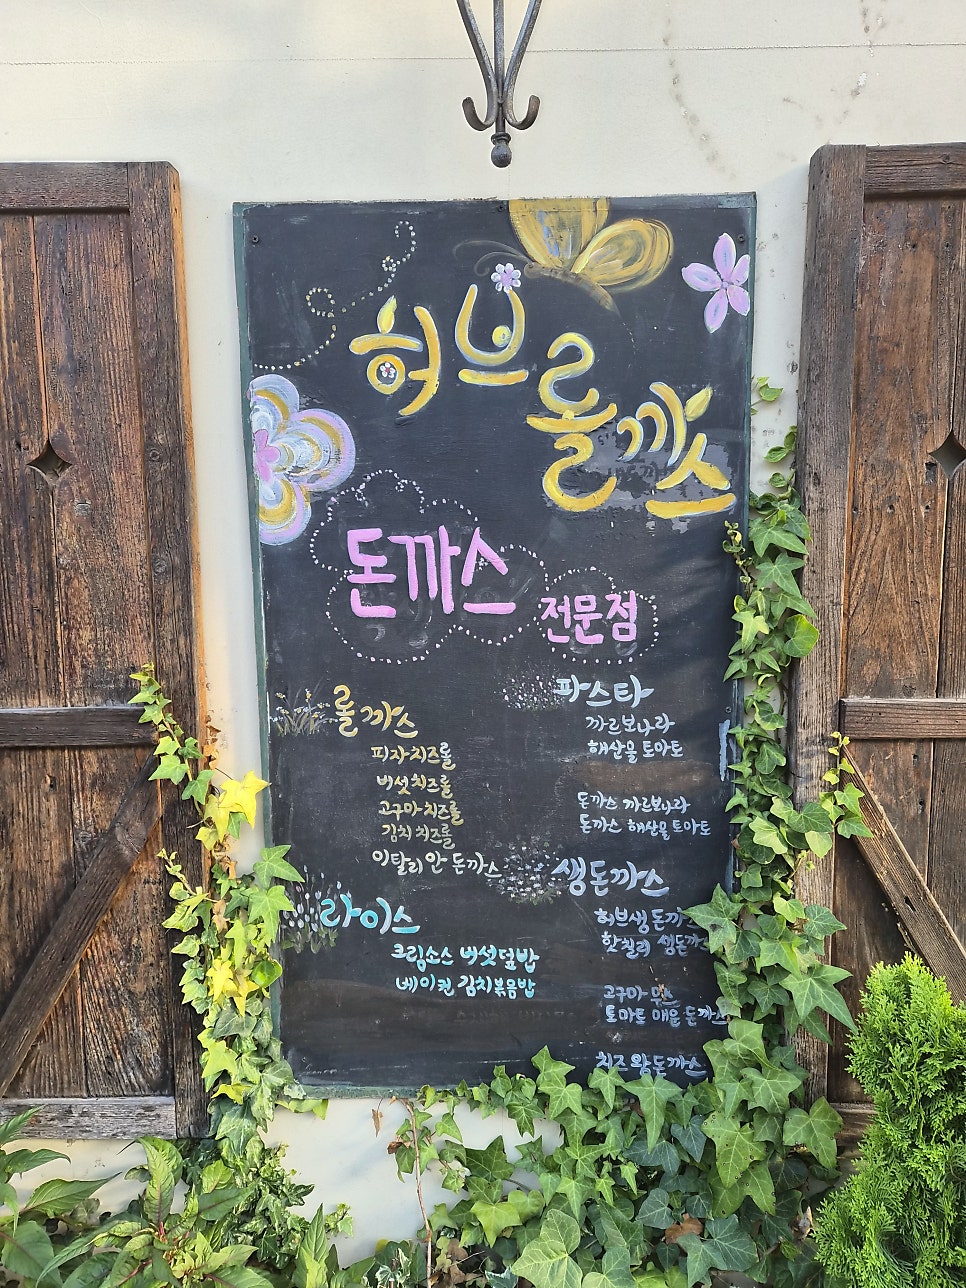 허브
롤까스
돈까스
전문점
롤까스
피자치즈롤
버섯치즈롤
고구마치즈롤
김치치즈롤
이탈리안 돈까스
라이스
크림소스 버섯덮밥
베이컨 김치볶음밥
파스타
까르보나라
해산물 토마토
돈까스 까르보나라
돈까스 해산물 토마토
생돈까스
허브생돈까스
핫칠리 생돈까
고구마 무스
토마토 매운 돈까스
치즈왕돈까스